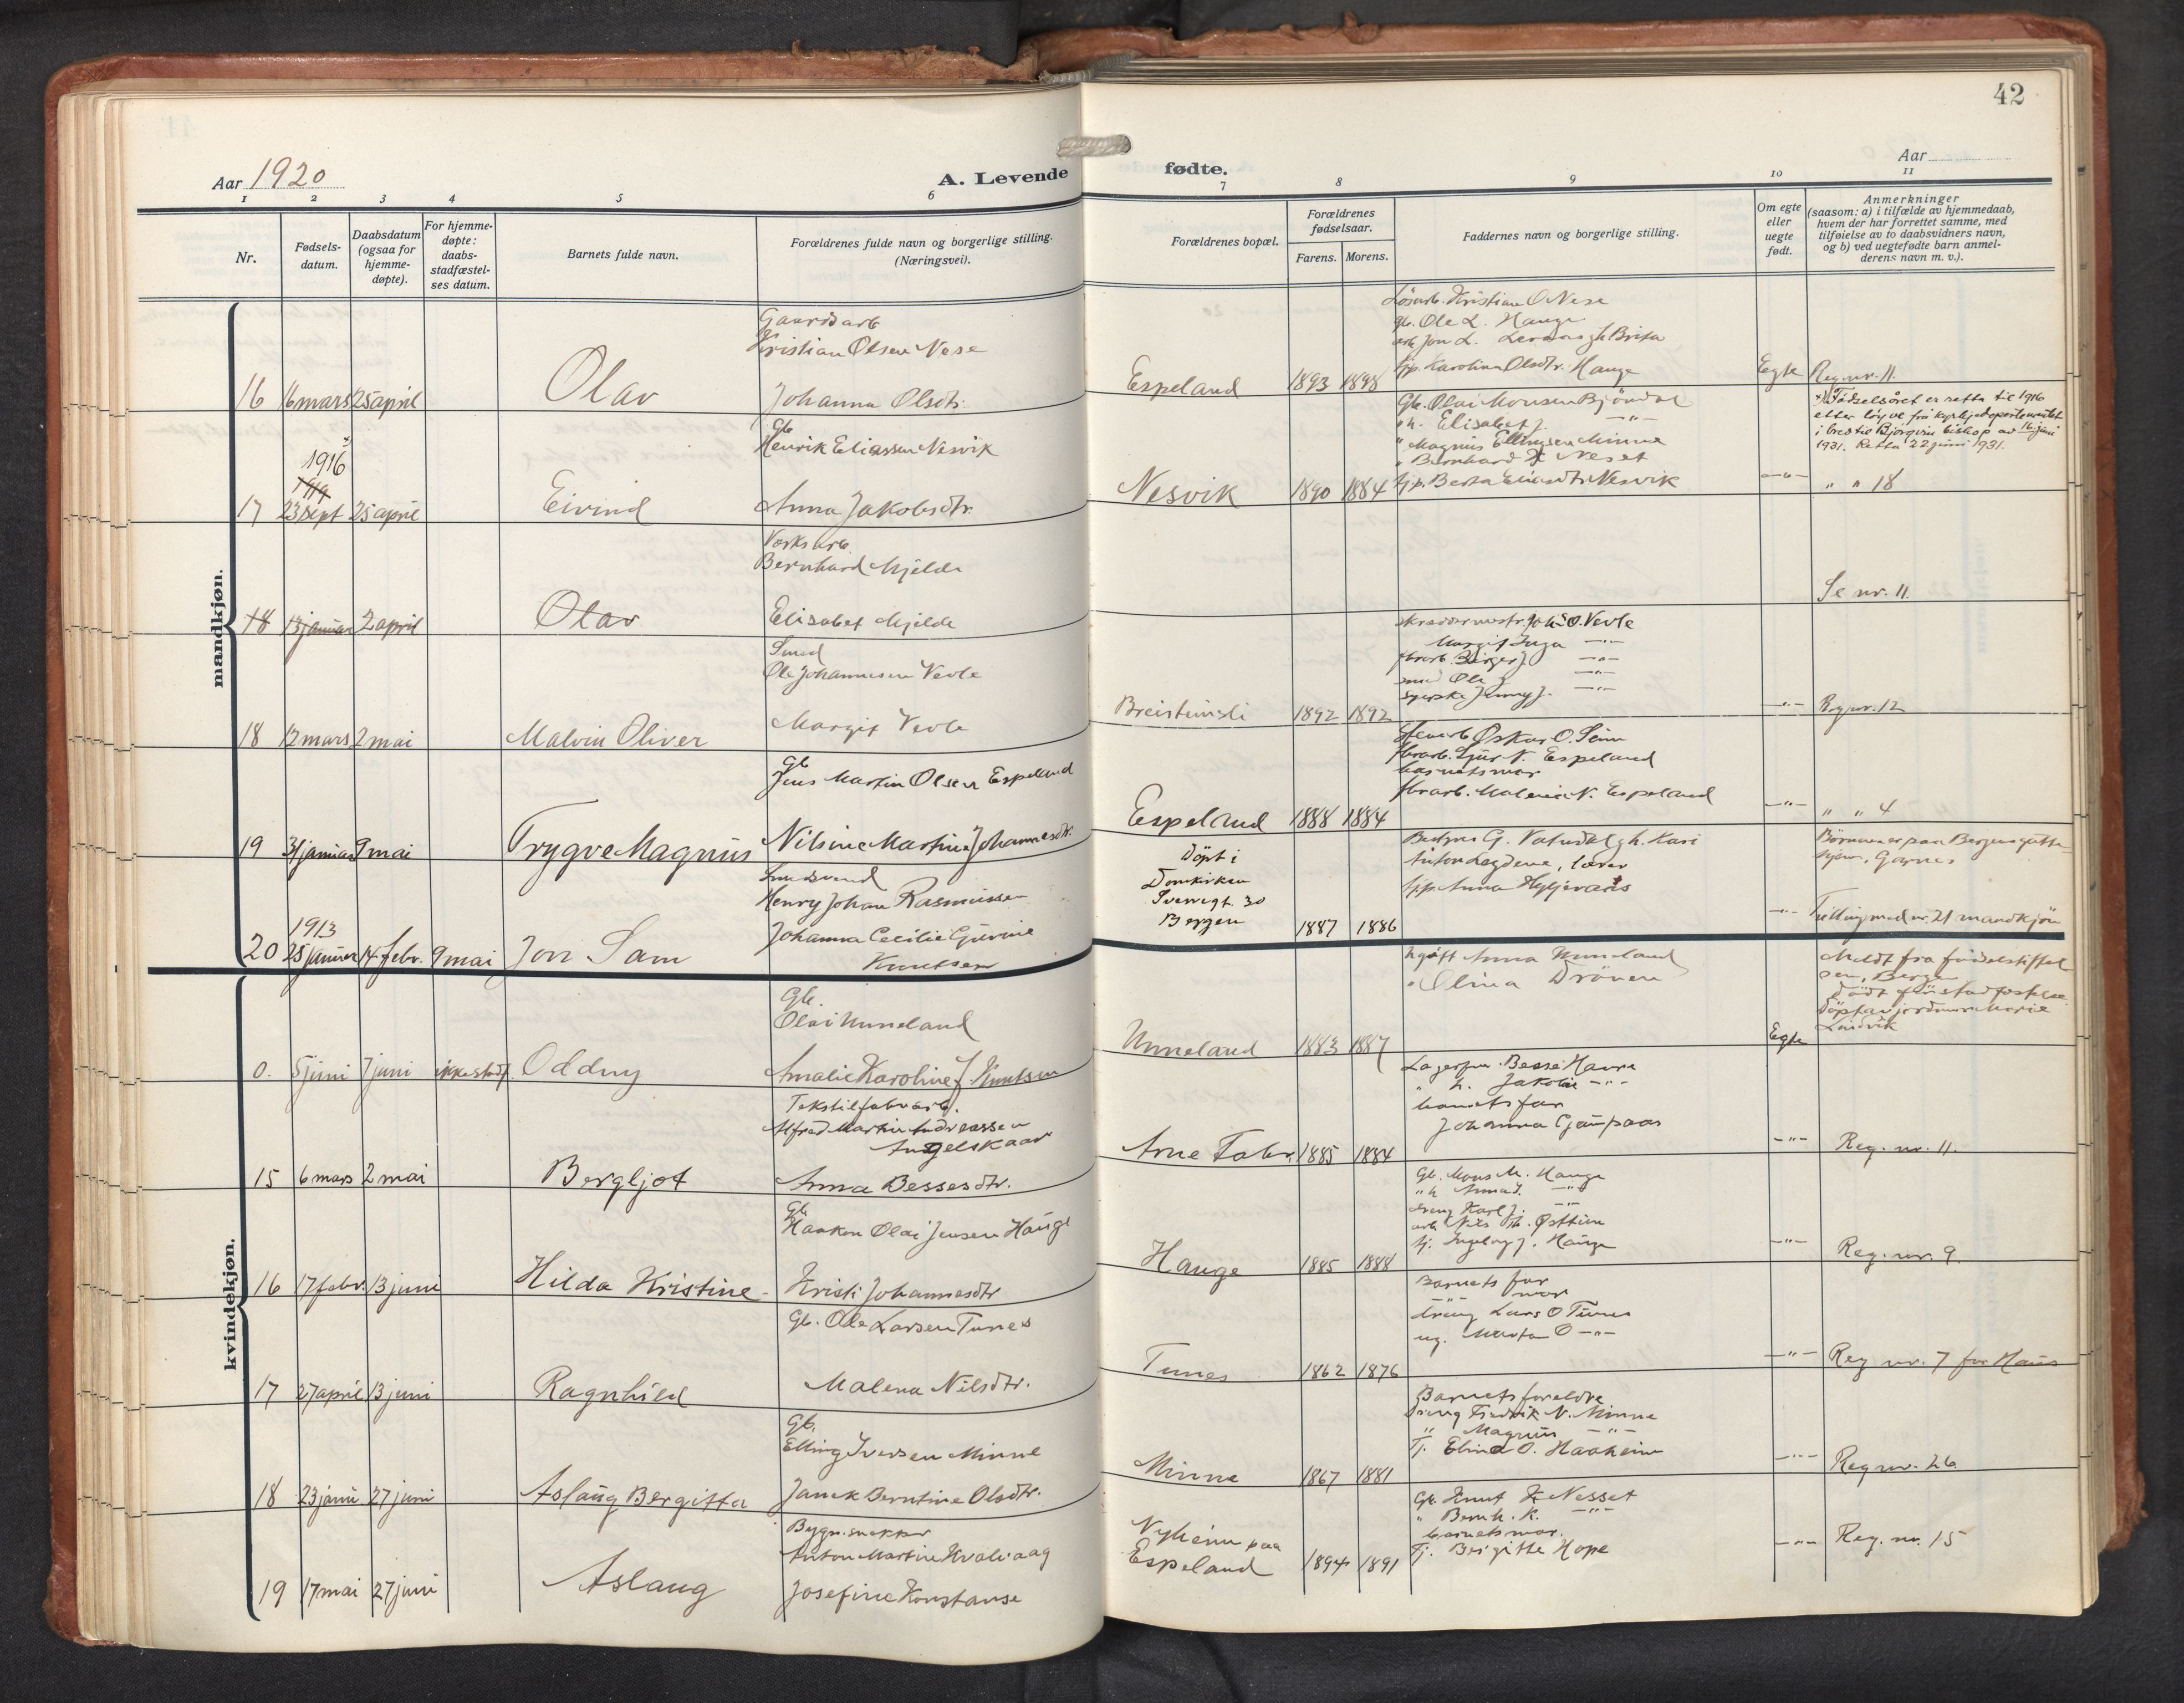 42
Aar 1920
A. Levende
fødte.
Aar
1 2 3 4 5 6
7 8 9 10 11
Nr.
Fødsels-
datum.
Daabsdatum
(ogsaa for
hjemme-
døpte).
For hjemme-
døpte:
daabs-
stadfæstel-
ses datum.
Barnets fulde navn.
Forældrenes fulde navn og borgerlige stilling.
(Næringsvei).
Forældrenes bopæl.
Forældrenes
fødselsaar.
Farens. Morens.
Faddernes navn og borgerlige stilling.
Om egte
eller
uegte
født.
Anmerkninger
(saasom: a) i tilfælde av hjemmedaab,
hvem der har forrettet samme, med
tilføielse av to daabsvidners navn,
og b) ved uegtefødte barn anmel-
derens navn m. v.).
mandkjøn.
Gaardsarb
Kristian Olsen Nese
16 16 mars 25 april Olav Johanna Olsdtr.
Espeland 1893 1898
Løsarb. Kristian O Nese
gb. Ole L. Hauge
arb Jon L. gh Brita
tjp. Karolina Olsdtr. Hauge
Egte Reg. nr. 11.
Gb
Henrik Eliassen Nesvik
x)
1916
1919
17 23 sept 25 april Eivind Anna Jakobsdtr.
Nesvik 1890 1884
Gb. Olai Monsen Bjöndal
" h. Elisabet J. -"-
" Magnus Ellingsen Minne
" Bernhard K Neset
tjp. Berta Eliasdtr Nesvik
-"-
x) Fødselsåret er retta til 1916
etter løyve frå kyrkjedepartementet
i brev til Bjørgvin biskop av 16. juni
1931. Retta 22 juni 1931.
" " 18
Verksarb.
Bernhard Mjelde
18 13 januar 2 april Olav Elisabet Mjelde
Se nr. 11.
Smed
Ole Johannesen Vevle
18 12 mars 2 mai Malvin Oliver Margit Vevle
Breistinsli 1892 1892
skræddermestr. Johs O. Vevle
Margit Inga -"-
fbrarb. Birger J. -"-
smed Ole J -"-
syerske Jenny J. -"-
-"- Reg nr. 12
Gb
Jens Martin Olsen Espeland
19 31 januar 9 mai Trygve Magnus Nilsine Martine Johannesdtr.
Espeland 1888 1884
Oskar O. Seim
fbrarb. Sjur N. Espeland
barnetsmor
fbrarb. Malena N. Espeland
-"- " " 4
Henry Johan Rasmussen
1913
20 25 januar 14 febr. 9 mai Jon Sam Johanna Cecilie Gurine
Knutsen
Døpt i
Domkirken
Sverregt. 30
Bergen 1887 1886
Bestyrer G. Vatnedal g h. Kari
Anton Legdene, lærer
tjp. Anna
Børnene er paa Bergens gutte-
hjem, Garnes
-"- Tvilling med nr. 21 mandkjön
kvindekjøn.
Gb.
Olai Unneland
0. 5 juni 7 juni ikke stadf. Oddny Amalie Karoline J. Knutsen
Unneland 1883 1887
ugift Anna Unneland
" Olina Drönen
Egte
Meldt fra fødselsstiftel
sen, Bergen
Död før stadfæstelse
Döpt av jordmor Marie
Leirvik
Tekstilfabrarb.
Alfred Martin Andreassen
Angelskaar
15 6 mars 2 mai Bergljot Anna Bessesdtr.
Arne Fabr. 1885 1884
Lagerfor. Besse Haure
" h. Jakobie -"-
barnets far
Johanna Gjøupaas
-"- Reg. nr. 11.
Gb.
Haakon Olai Jensen Hauge
16 17 febr. 13 juni Hilda Kristine Kristi Johannesdtr
Hauge 1885 1888
Gb. Mons M. Hauge
" h Anna J. -"-
dreng Karl J. -"-
arb Nils Th. Østtun
tj. Ingeborg J. Hauge
-"- Reg. nr. 9.
Gb. Ole Larsen Tunes
17 27 april 13 juni Ragnhild Malena Nilsdtr.
Tunes 1862 1876
Barnets far
-"- mor
dreng Lars O Tunes
ug. Marta O -"-
-"- Reg nr. 7 for Haus
Gb.
Elling Iversen Minne
18 23 juni 27 juni Aslaug Bergitta Janek Berntine Olsdtr.
Minne 1867 1881
Barnets foreldre
Dreng Fredrik N. Minne
" Magnus -"-
Tj. Elina O. Haaheim
-"- Reg nr. 26.
Bygn.snekker
Anton Martin Kvaleaag
19 17 mai 27 juni Aslaug Josefine Konstanse
Nyheim paa
Espeland 1894 1891
Gb. Knut K Nesset
" Bernh. K. -"-
barnets mor.
Tj. Bergitte Hope
-"- Reg. nr. 15